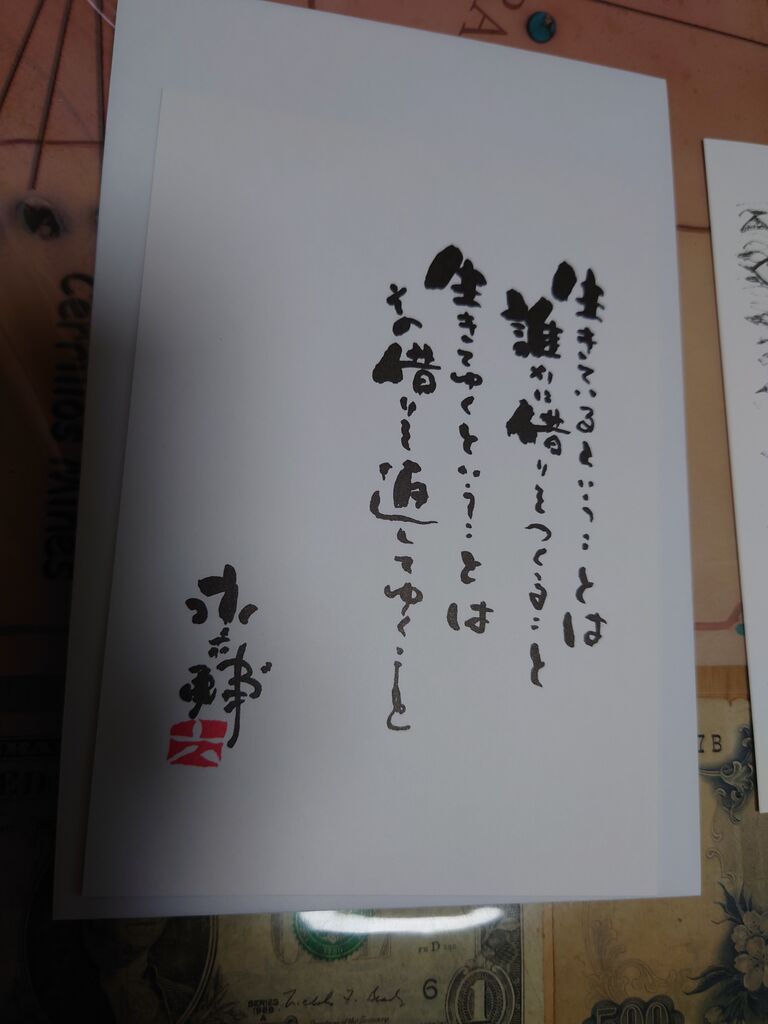 生きているということは
誰かに借りをつくること
生きてゆくということは
その借りを返してゆくこと
永六輔
六
Cerrillos Mines
PA
7B
SERIES
6
1
500